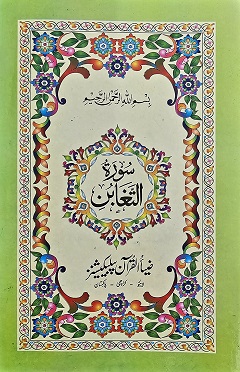 بسم الله الرحمن الرحيم
سُورَةُ
التَّغَابُن
ضیاءُ القرآن پبلی کیشنز
لاہور - کراچی - پاکستان